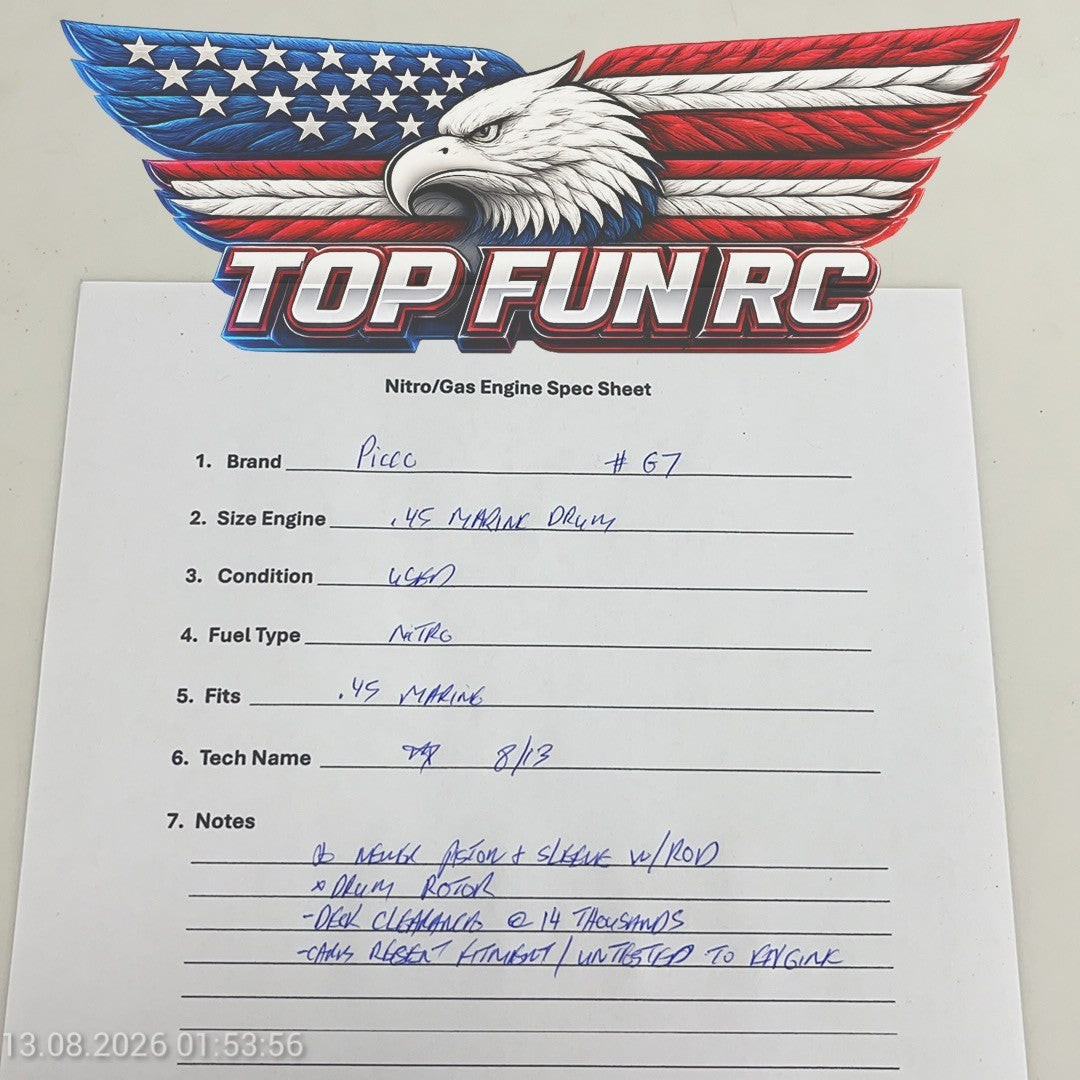 TOP FUN RC
Nitro/Gas Engine Spec Sheet
1. Brand Picco # 67
2. Size Engine .45 MARINE DRUM
3. Condition USED
4. Fuel Type NITRO
5. Fits .45 MARINE
6. Tech Name 8/13
7. Notes
NEWER PISTON + SLEEVE W/ROD
DRUM ROTOR
-DECK CLEARANCE @ 14 THOUSANDS
-CARB RESENT FITMENT / UNTESTED TO ENGINE
13.08.2026 01:53:56